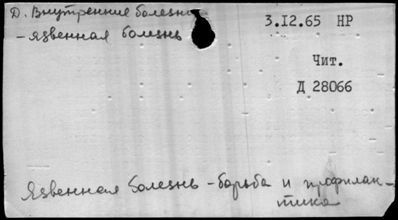 Д. Внутренние болезни
- язвенная болезнь
3.12.65 НР
Чит.
Д 28066
Язвенная болезнь - борьба и профилак-
тика